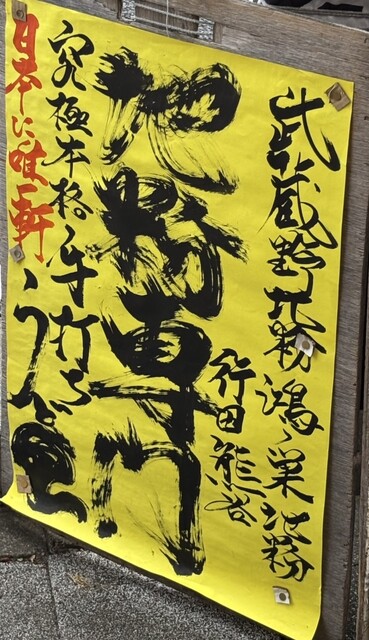 武蔵野地粉鴻ノ巣地粉
行田熊谷
地粉専門
究極本格手打ちうどん
日本に唯一軒